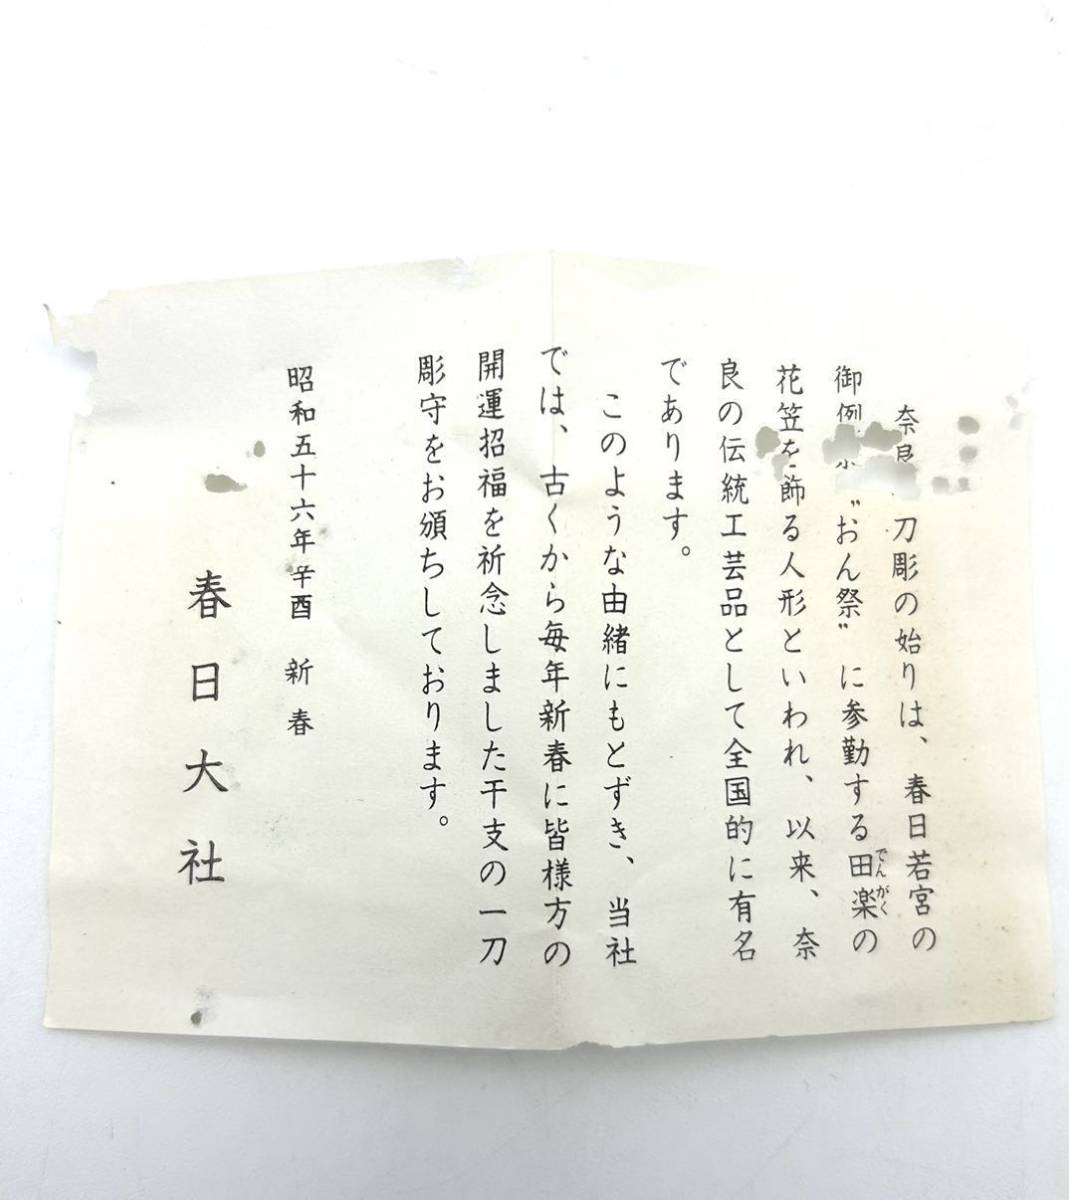 奈良 刀彫の始りは、春日若宮の
御例 〝おん祭〟に参勤する田楽の
でんがく
花笠を飾る人形といわれ、以来、奈
良の伝統工芸品として全国的に有名
であります。
このような由緒にもとずき、当社
では、古くから毎年新春に皆様方の
開運招福を祈念しました干支の一刀
彫守をお頒ちしております。
昭和五十六年辛酉 新春
春日大社